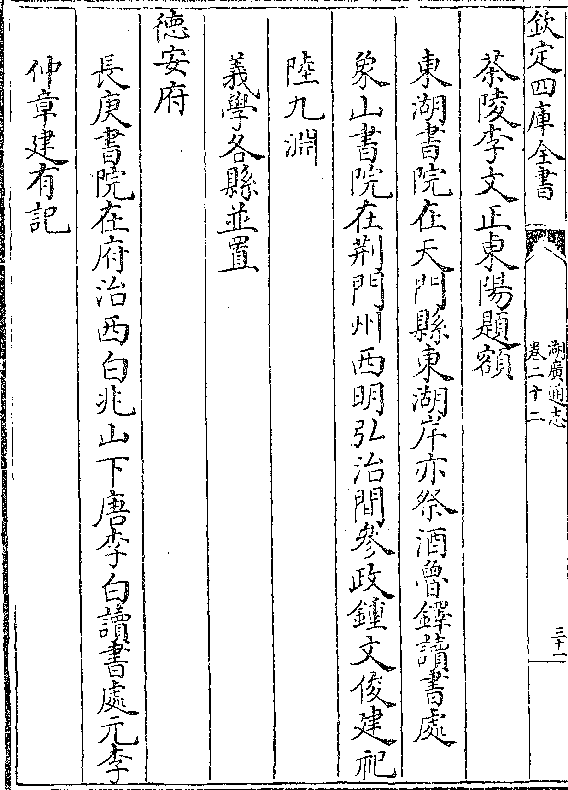 欽定四庫全書
湖廣通志
卷二十二
三十一
茶陵李文正東陽題額
東湖書院在天門縣東湖岸亦祭酒魯鐸讀書處
象山書院在荆門州西明弘治間參政鍾文俊建祀
陸九淵
義學各縣並置
德安府
長庚書院在府治西白兆山下唐李白讀書處元李
仲章建有記